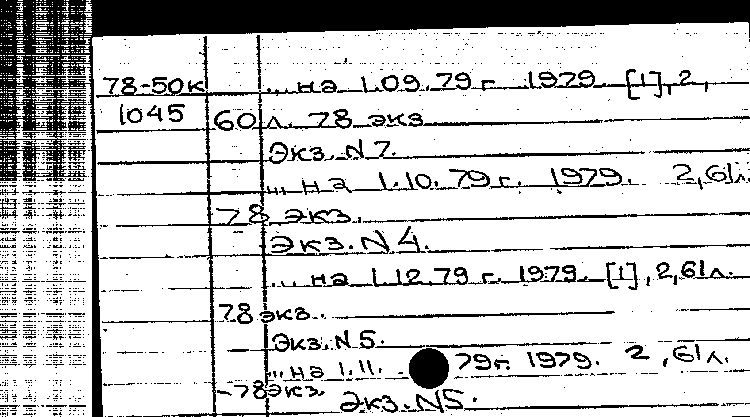 78-50к ... на 1.09.79 г. 1979. [1], 2,
1045 60 л. 78 экз
Экз. N 7.
... на 1.10.79 г. 1979. 2,61 л.
78 экз.
Экз. N 4.
... на 1.12.79 г. 1979. [1], 2,61 л.
78 экз.
Экз. N 5.
... на 1.11. 79 г. 1979. 2,61 л.
78 экз. Экз. N5.